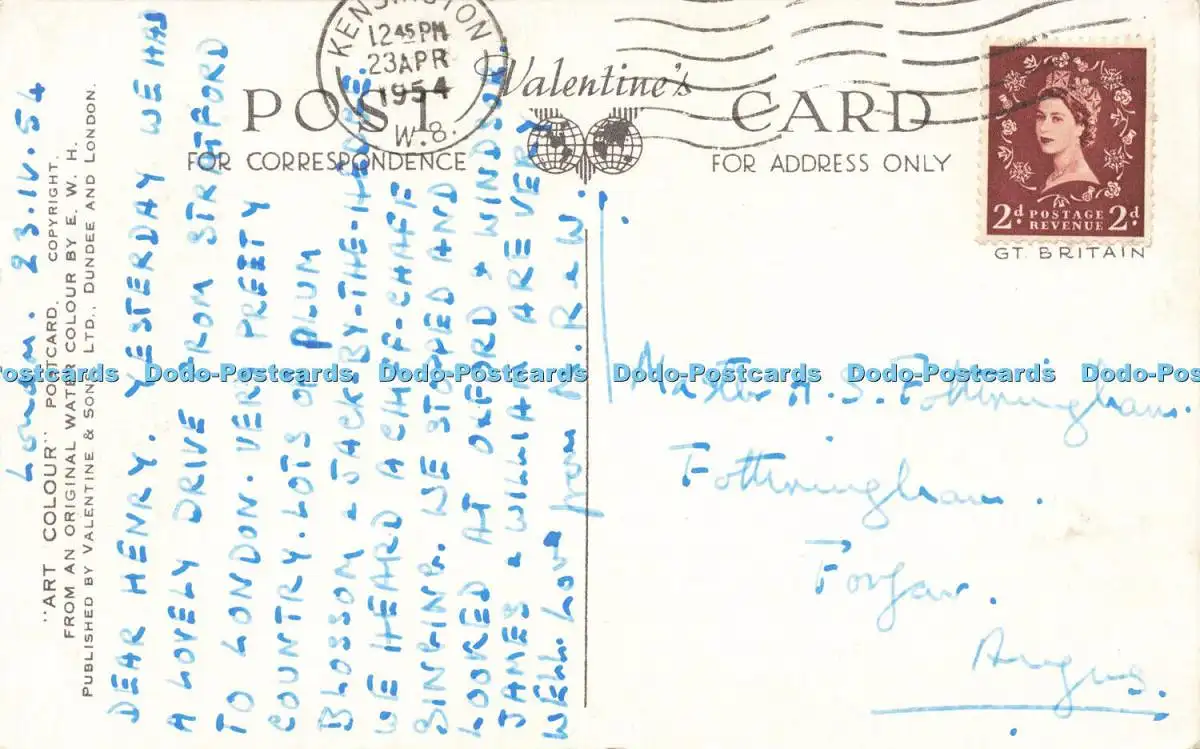 KENSINGTON
12 45 PM
23 APR
1954
W.8.
POST CARD
Valentine's
FOR CORRESPONDENCE
FOR ADDRESS ONLY
2d POSTAGE REVENUE 2d
GT. BRITAIN
London. 23.IV.54
"ART COLOUR" POSTCARD. COPYRIGHT.
FROM AN ORIGINAL WATER COLOUR BY E. W. H.
PUBLISHED BY VALENTINE & SONS LTD., DUNDEE AND LONDON.
DEAR HENRY. YESTERDAY WE HAD
A LOVELY DRIVE FROM STRATFORD
TO LONDON. VERY PRETTY
COUNTRY. LOTS OF PLUM
BLOSSOM & JACK-BY-THE-HEDGE.
WE HEARD A CHIFF-CHAFF
SINGING. WE STOPPED AND
LOOKED AT OXFORD & WINDSOR.
JAMES & WILLIAM ARE VERY
WELL. Love from M. R & W.
Master H. S. Fothringham.
Fothringham.
Forfar.
Angus.
Dodo-Postcards Dodo-Postcards Dodo-Postcards Dodo-Postcards Dodo-Postcards Dodo-Pos